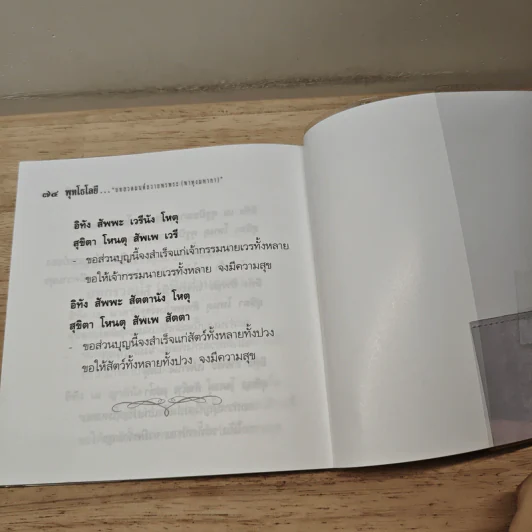 ๗๘ พุทโธโลยี...
อิทัง สัพพะ เวรีนัง โหตุ
สุขิตา โหนตุ สัพเพ เวรี
- ขอส่วนบุญนี้จงสำเร็จแก่เจ้ากรรมนายเวรทั้งหลาย
ขอให้เจ้ากรรมนายเวรทั้งหลาย จงมีความสุข
อิทัง สัพพะ สัตตานัง โหตุ
สุขิตา โหนตุ สัพเพ สัตตา
- ขอส่วนบุญนี้จงสำเร็จแก่สัตว์ทั้งหลายทั้งปวง
ขอให้สัตว์ทั้งหลายทั้งปวง จงมีความสุข